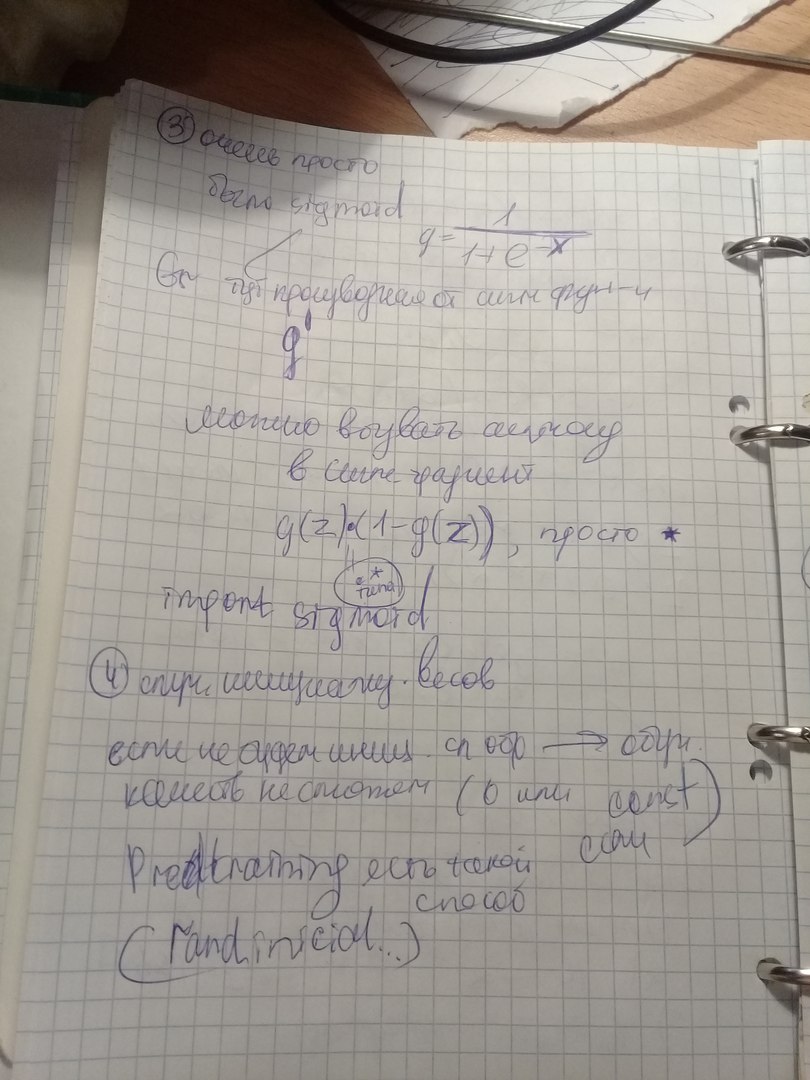 ③ очень просто
было sigmoid
g = 1 / (1 + e^-x)
тут производная от функ-и
g'
можно вызвать
в градиент
g(z)·(1-g(z)), просто *
import sigmoid
④ случ. инициализ. весов
если не будем иниц. сл обр → обуч.
качеств не сможем (0 или const)
Pretraining есть такой
способ
(rand.inicial...)